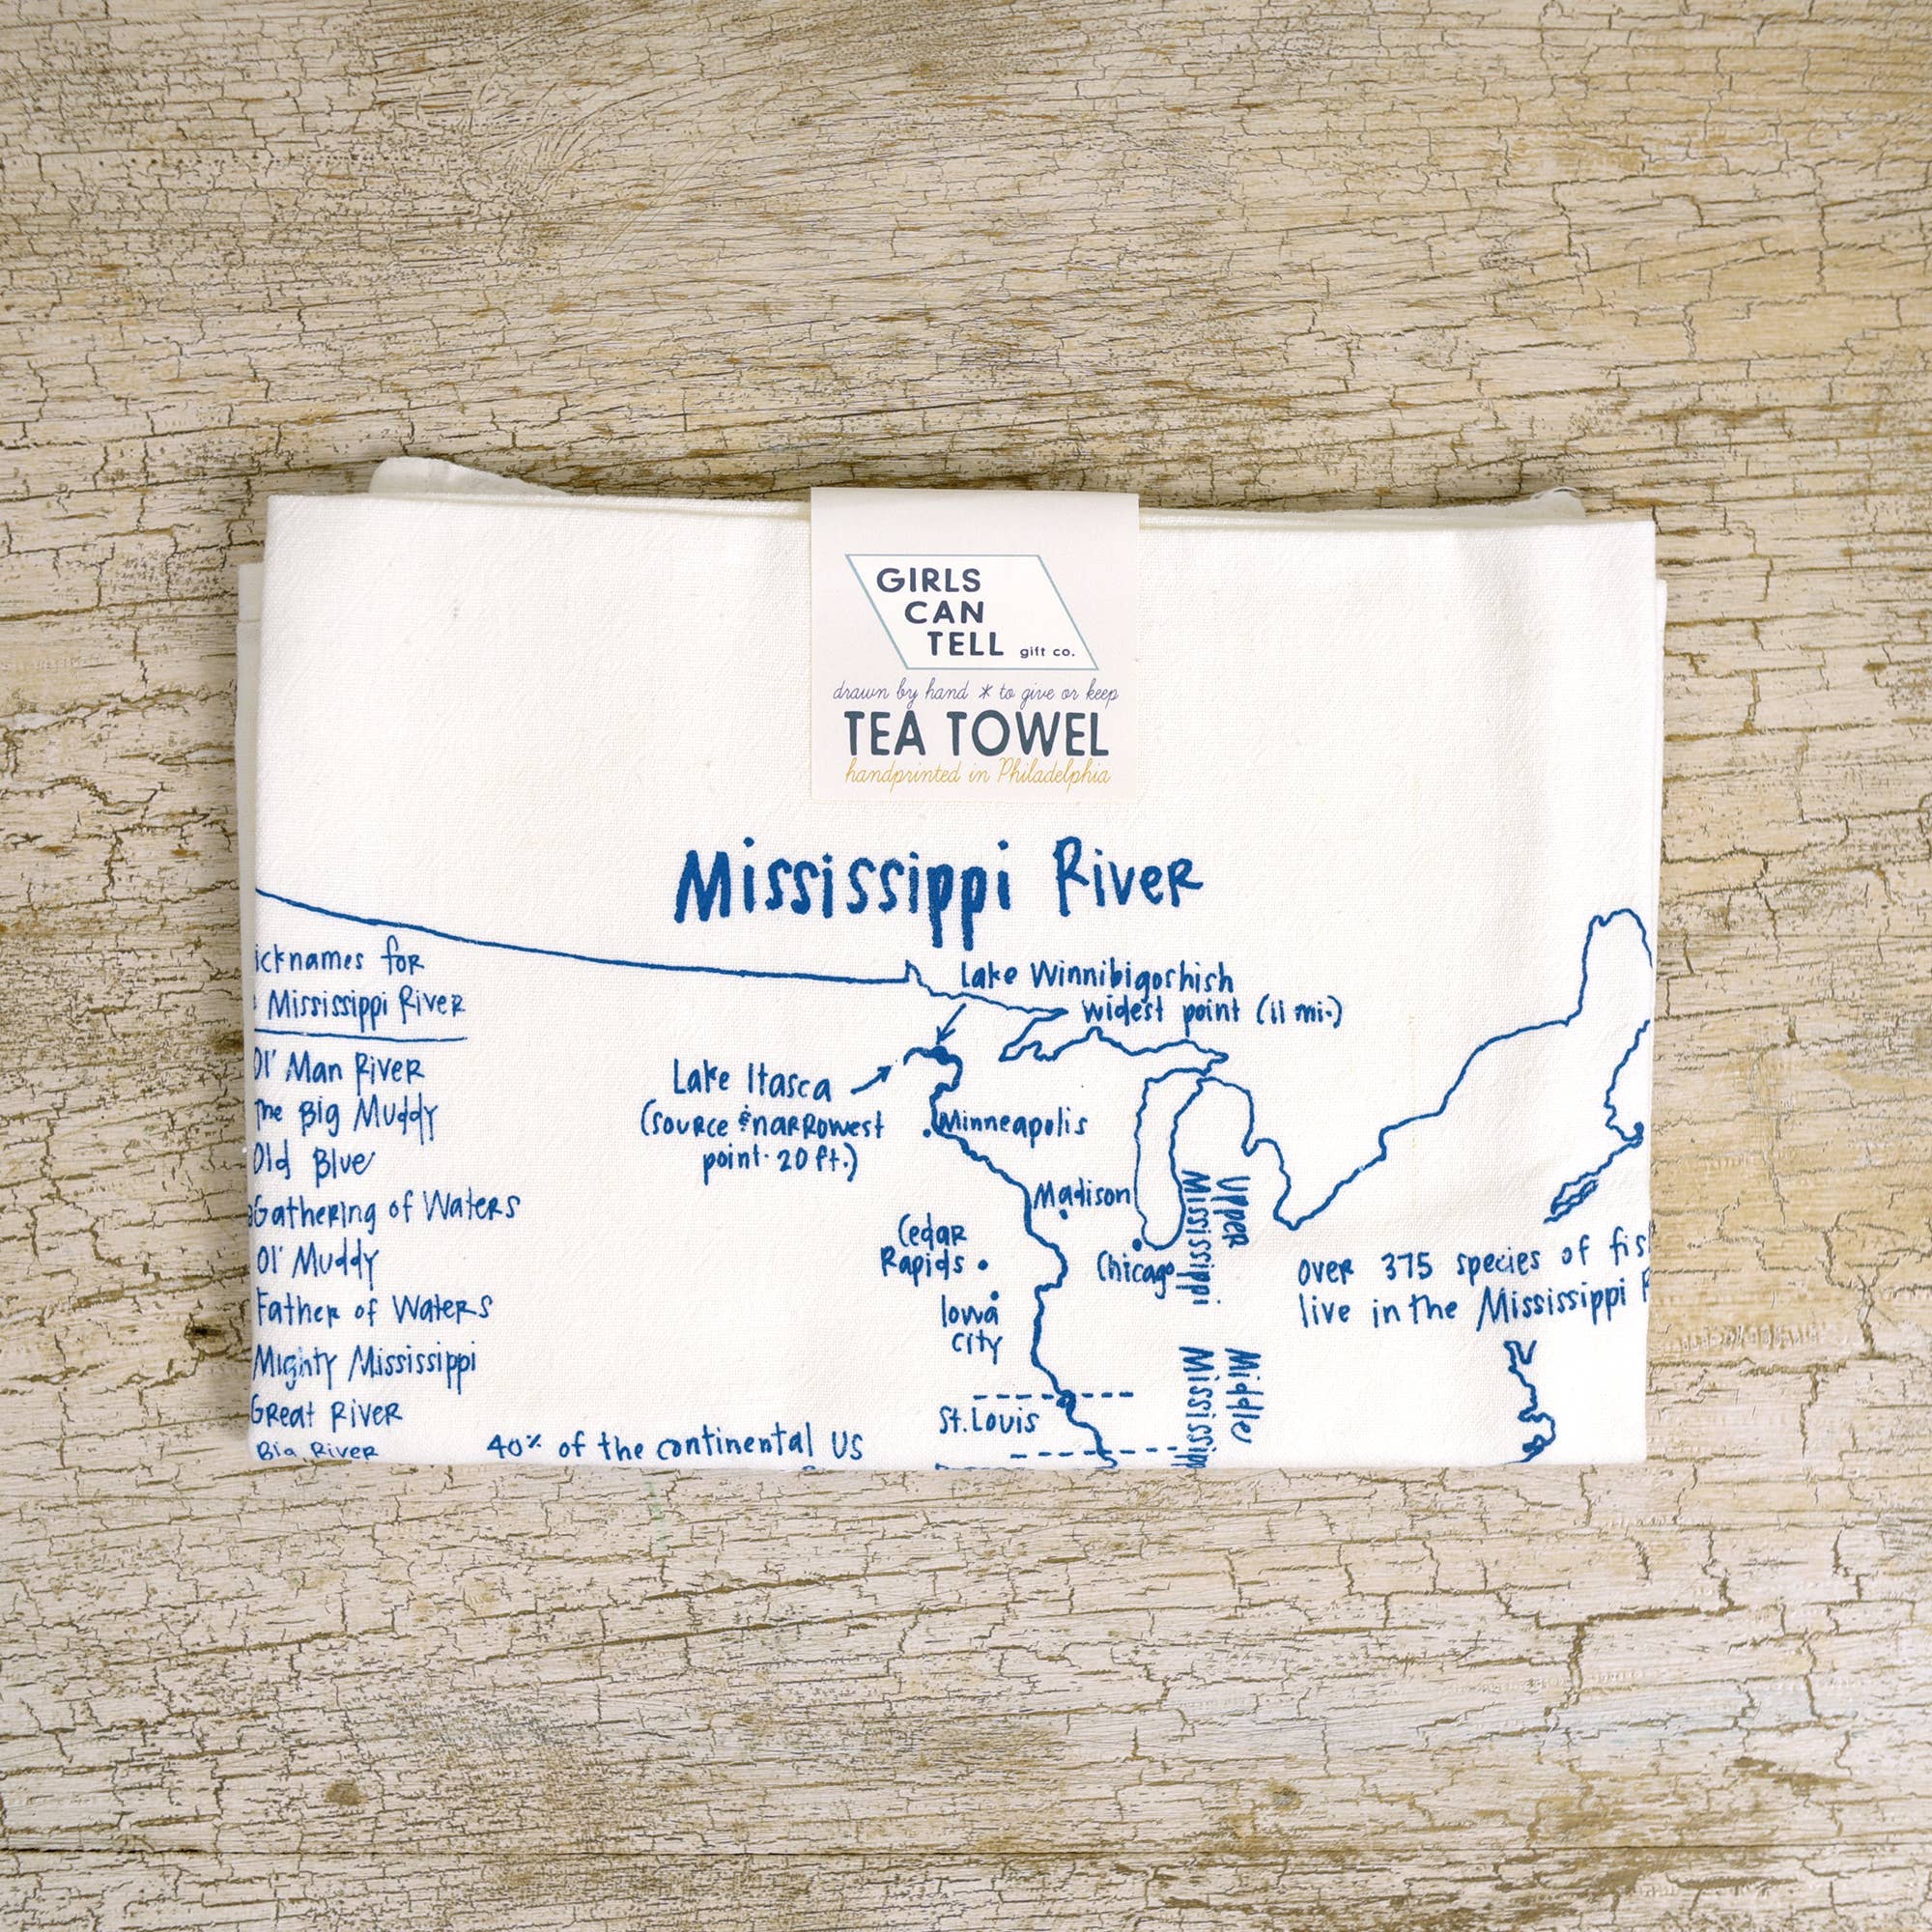 GIRLS
CAN
TELL gift co.
drawn by hand * to give or keep
TEA TOWEL
handprinted in Philadelphia
Mississippi River
icknames for
Mississippi River
Ol' Man River
The Big Muddy
Old Blue
Gathering of Waters
Ol' Muddy
Father of Waters
Mighty Mississippi
Great River
Big River
Lake Winnibigoshish
widest point (11 mi.)
Lake Itasca
(source & narrowest
point - 20 ft.)
Minneapolis
Madison
Cedar
Rapids
Chicago
Iowa
City
St. Louis
Upper
Mississippi
Middle
Mississipp
over 375 species of fis
live in the Mississippi R
40% of the continental US